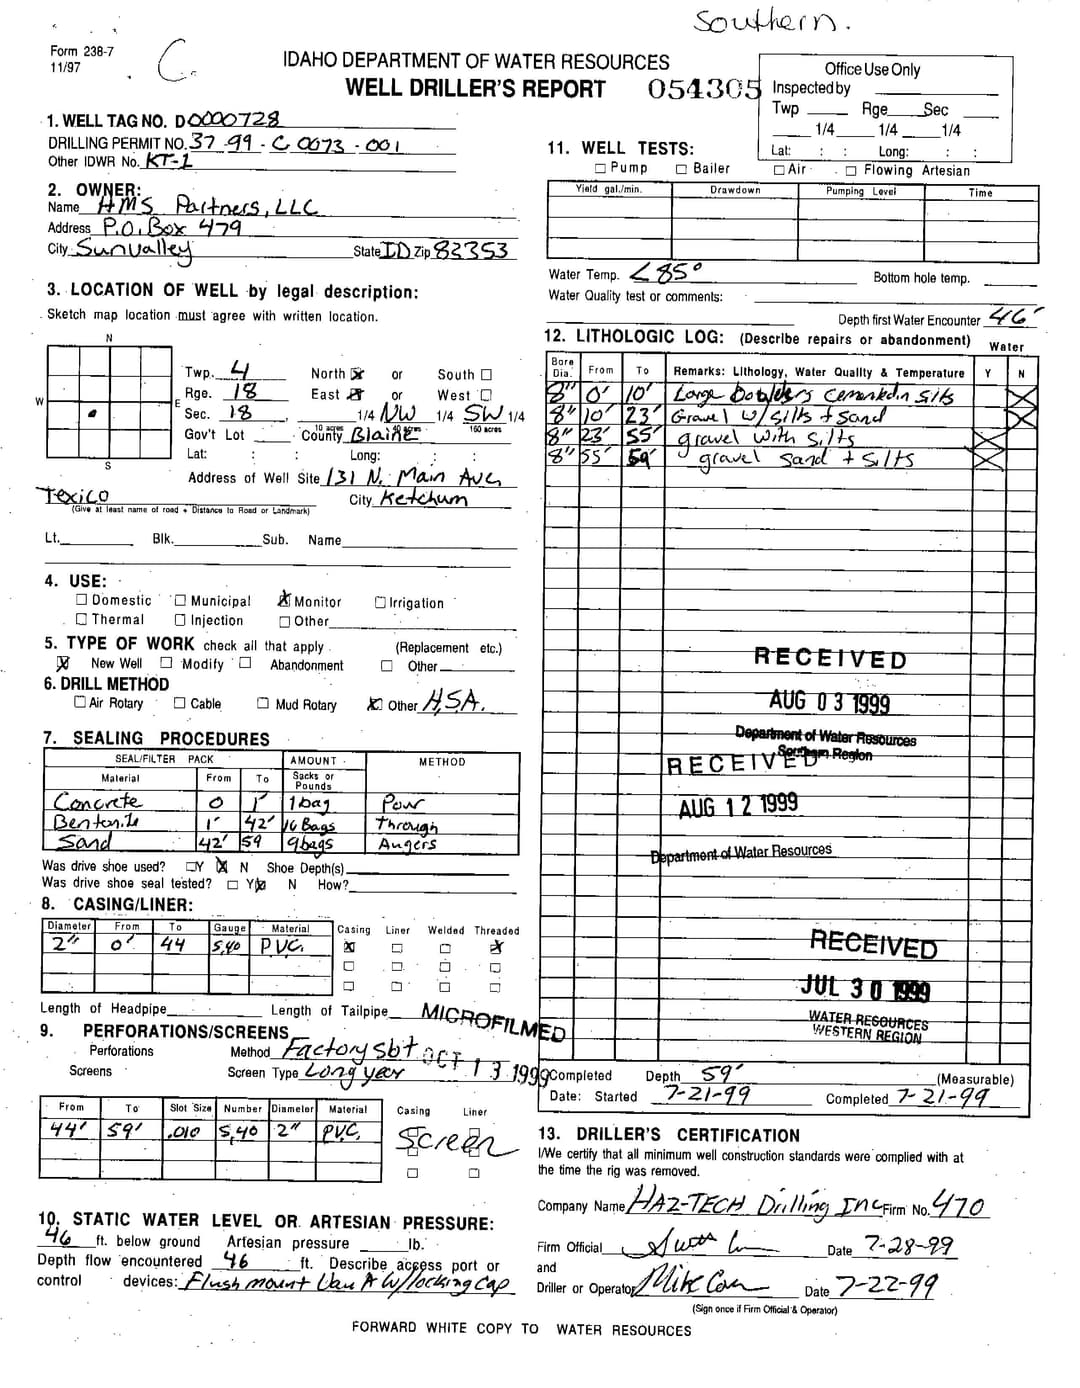 Southern.
Form 238-7
11/97
C.
IDAHO DEPARTMENT OF WATER RESOURCES
WELL DRILLER'S REPORT 054305
Office Use Only
Inspected by
Twp Rge Sec
1/4 1/4 1/4
Lat: : : Long: : :
1. WELL TAG NO. D0000728
DRILLING PERMIT NO. 37-99-C 0073-001
Other IDWR No. KT-1
2. OWNER:
Name HMS Partners, LLC
Address P.O. Box 479
City Sunvalley State ID Zip 83353
3. LOCATION OF WELL by legal description:
Sketch map location must agree with written location.
N
W
E
S
Twp. 4 North ☒ or South ☐
Rge. 18 East ☒ or West ☐
Sec. 18 , 1/4 NW 1/4 SW 1/4
10 acres 40 acres 160 acres
Gov't Lot County Blaine
Lat: : : Long: : :
Address of Well Site 131 N. Main Ave
Texico City Ketchum
(Give at least name of road + Distance to Road or Landmark)
Lt. Blk. Sub. Name
4. USE:
☐ Domestic ☐ Municipal ☒ Monitor ☐ Irrigation
☐ Thermal ☐ Injection ☐ Other
5. TYPE OF WORK check all that apply (Replacement etc.)
☒ New Well ☐ Modify ☐ Abandonment ☐ Other
6. DRILL METHOD
☐ Air Rotary ☐ Cable ☐ Mud Rotary ☒ Other H.S.A.
7. SEALING PROCEDURES
SEAL/FILTER PACK AMOUNT METHOD
Material From To Sacks or Pounds
Concrete 0 1' 1 bag Pour
Bentonite 1' 42' 16 Bags Through
Sand 42' 59 9 bags Augers
Was drive shoe used? ☐ Y ☒ N Shoe Depth(s)
Was drive shoe seal tested? ☐ Y ☒ N How?
8. CASING/LINER:
Diameter From To Gauge Material Casing Liner Welded Threaded
2" 0' 44 S,40 PVC. ☒ ☐ ☐ ☒
☐ ☐ ☐ ☐
☐ ☐ ☐ ☐
Length of Headpipe Length of Tailpipe
MICROFILMED
OCT 13 1999
9. PERFORATIONS/SCREENS
Perforations Method Factory Slot
Screens Screen Type Longyear
From To Slot Size Number Diameter Material Casing Liner
44' 59' .010 S,40 2" PVC. Screen
☐ ☐
10. STATIC WATER LEVEL OR ARTESIAN PRESSURE:
46 ft. below ground Artesian pressure lb.
Depth flow encountered 46 ft. Describe access port or
control devices: Flushmount Vault W/locking Cap
11. WELL TESTS:
☐ Pump ☐ Bailer ☐ Air ☐ Flowing Artesian
Yield gal./min. Drawdown Pumping Level Time
Water Temp. <85° Bottom hole temp.
Water Quality test or comments:
Depth first Water Encounter 46'
12. LITHOLOGIC LOG: (Describe repairs or abandonment) Water
Bore Dia. From To Remarks: Lithology, Water Quality & Temperature Y N
8" 0' 10' Large Boulders Cemented in Silts X
8" 10' 23' Gravel w/ silts + sand X
8" 23' 55' gravel with silts X
8" 55' 59' gravel sand + silts X
RECEIVED
AUG 03 1999
Department of Water Resources
Southern Region
RECEIVED
AUG 12 1999
Department of Water Resources
RECEIVED
JUL 30 1999
WATER RESOURCES
WESTERN REGION
Completed Depth 59' (Measurable)
Date: Started 7-21-99 Completed 7-21-99
13. DRILLER'S CERTIFICATION
I/We certify that all minimum well construction standards were complied with at
the time the rig was removed.
Company Name HAZ-TECH Drilling Inc Firm No. 470
Firm Official Date 7-28-99
and
Driller or Operator Mike Date 7-22-99
(Sign once if Firm Official & Operator)
FORWARD WHITE COPY TO WATER RESOURCES